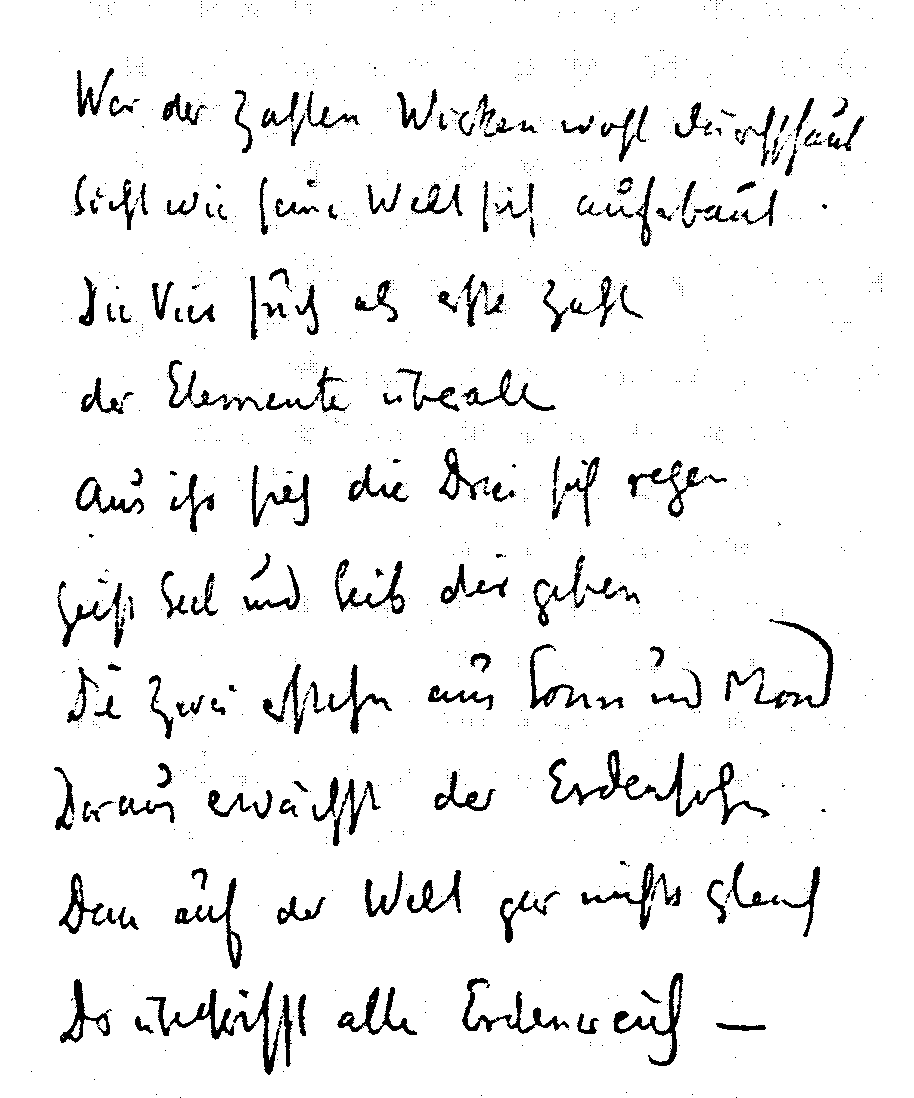 Wer der Zahlen Wirken wohl durchschaut
Sieht wie seine Welt sich aufbaut.
Die Vier sieh als erste Zahl
der Elemente überall
Aus ihr sieh die Drei sich regen
Geist Seel und Leib dir geben
Die Zwei erstehn aus Sonn und Mond
Daraus erwächst der Erdensohn.
Dem auf der Welt gar nichts gleich
Do übertrifft alle Erdenreich —